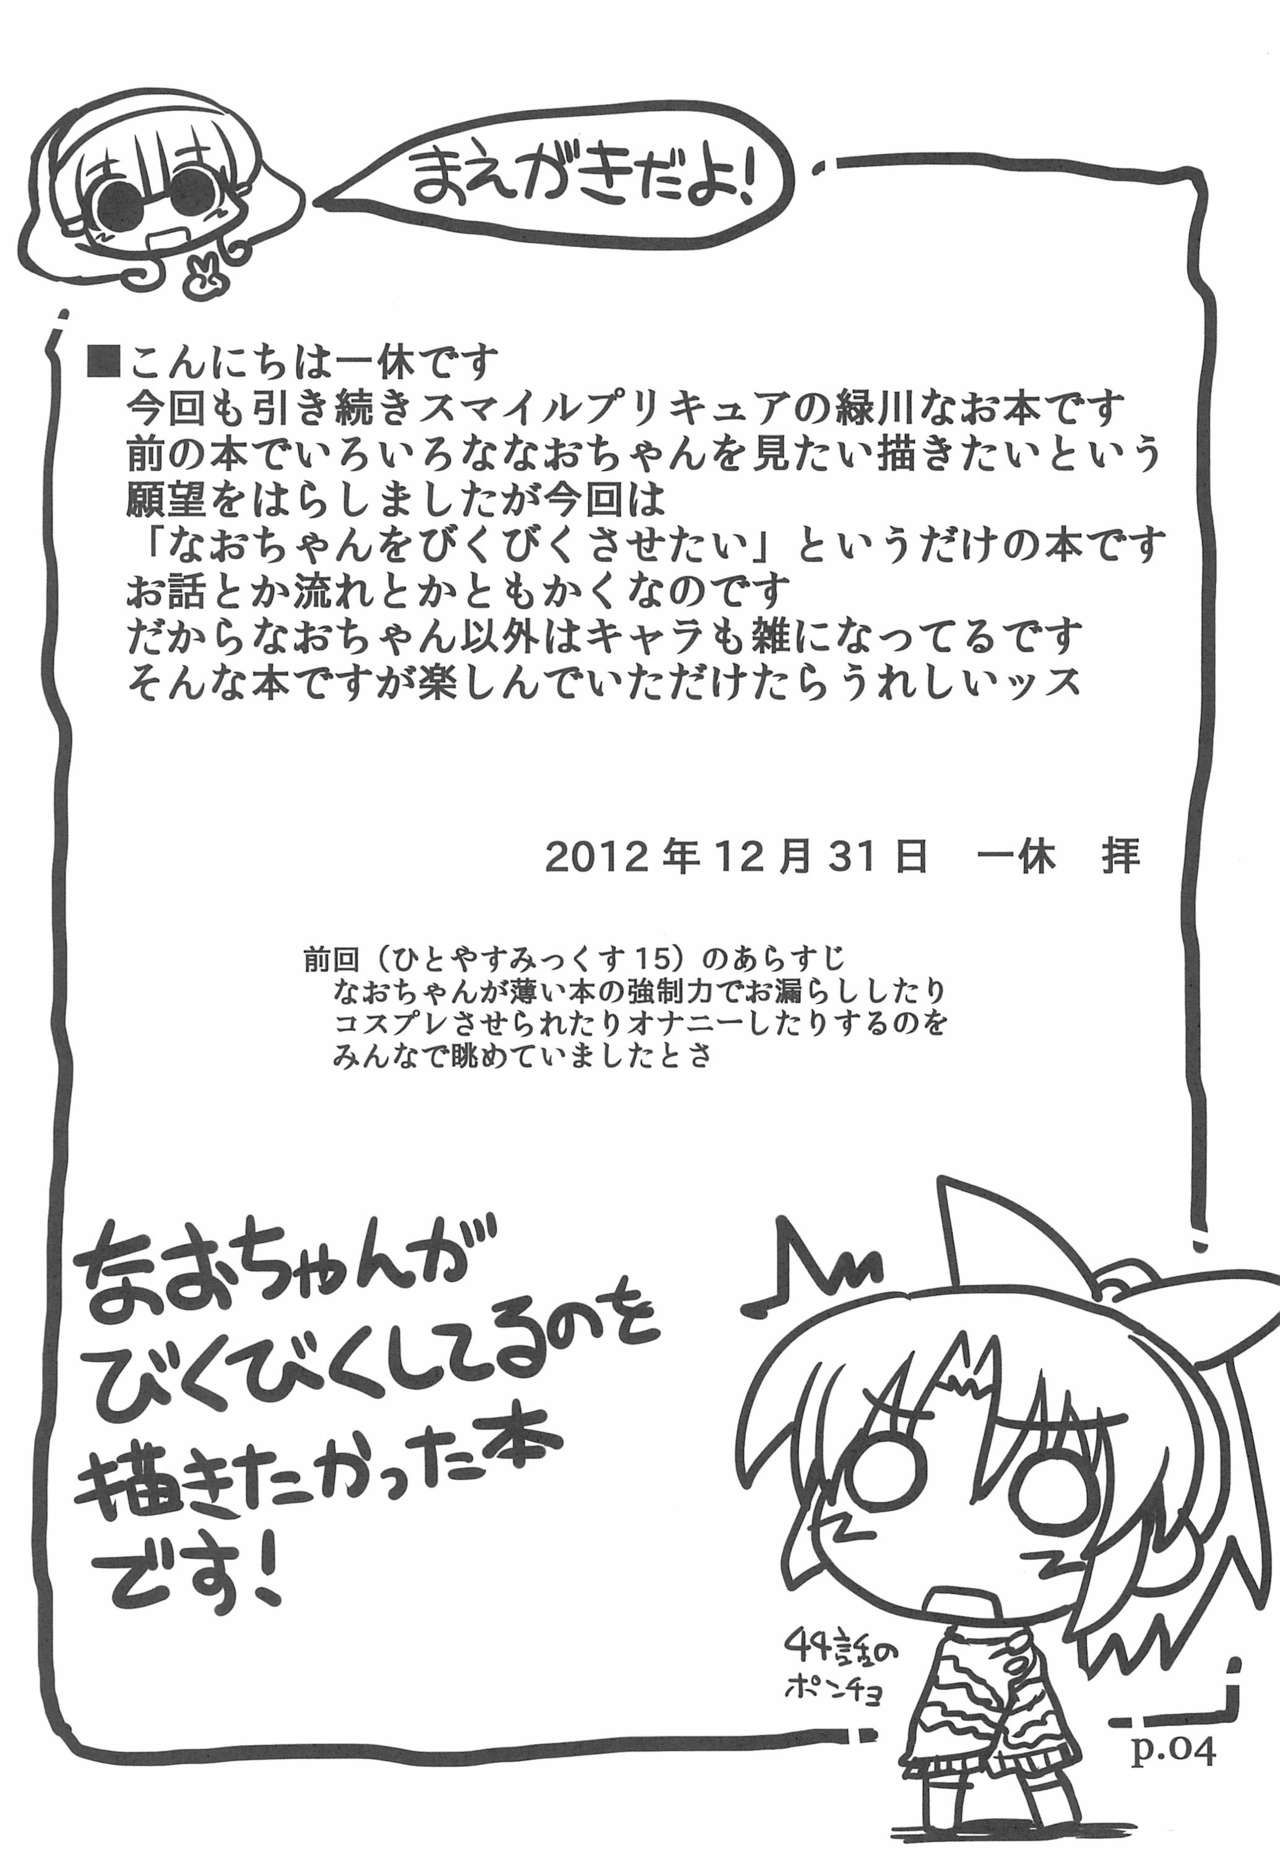 まえがきだよ！
■こんにちは一休です
今回も引き続きスマイルプリキュアの緑川なお本です
前の本でいろいろななおちゃんを見たい描きたいという
願望をはらしましたが今回は
「なおちゃんをびくびくさせたい」というだけの本です
お話とか流れとかともかくなのです
だからなおちゃん以外はキャラも雑になってるです
そんな本ですが楽しんでいただけたらうれしいッス
2012年12月31日　一休　拝
前回（ひとやすみっくす15）のあらすじ
なおちゃんが
びくびくしてるのを
描きたかった本
です！
44話の
ポンチョ
p.04